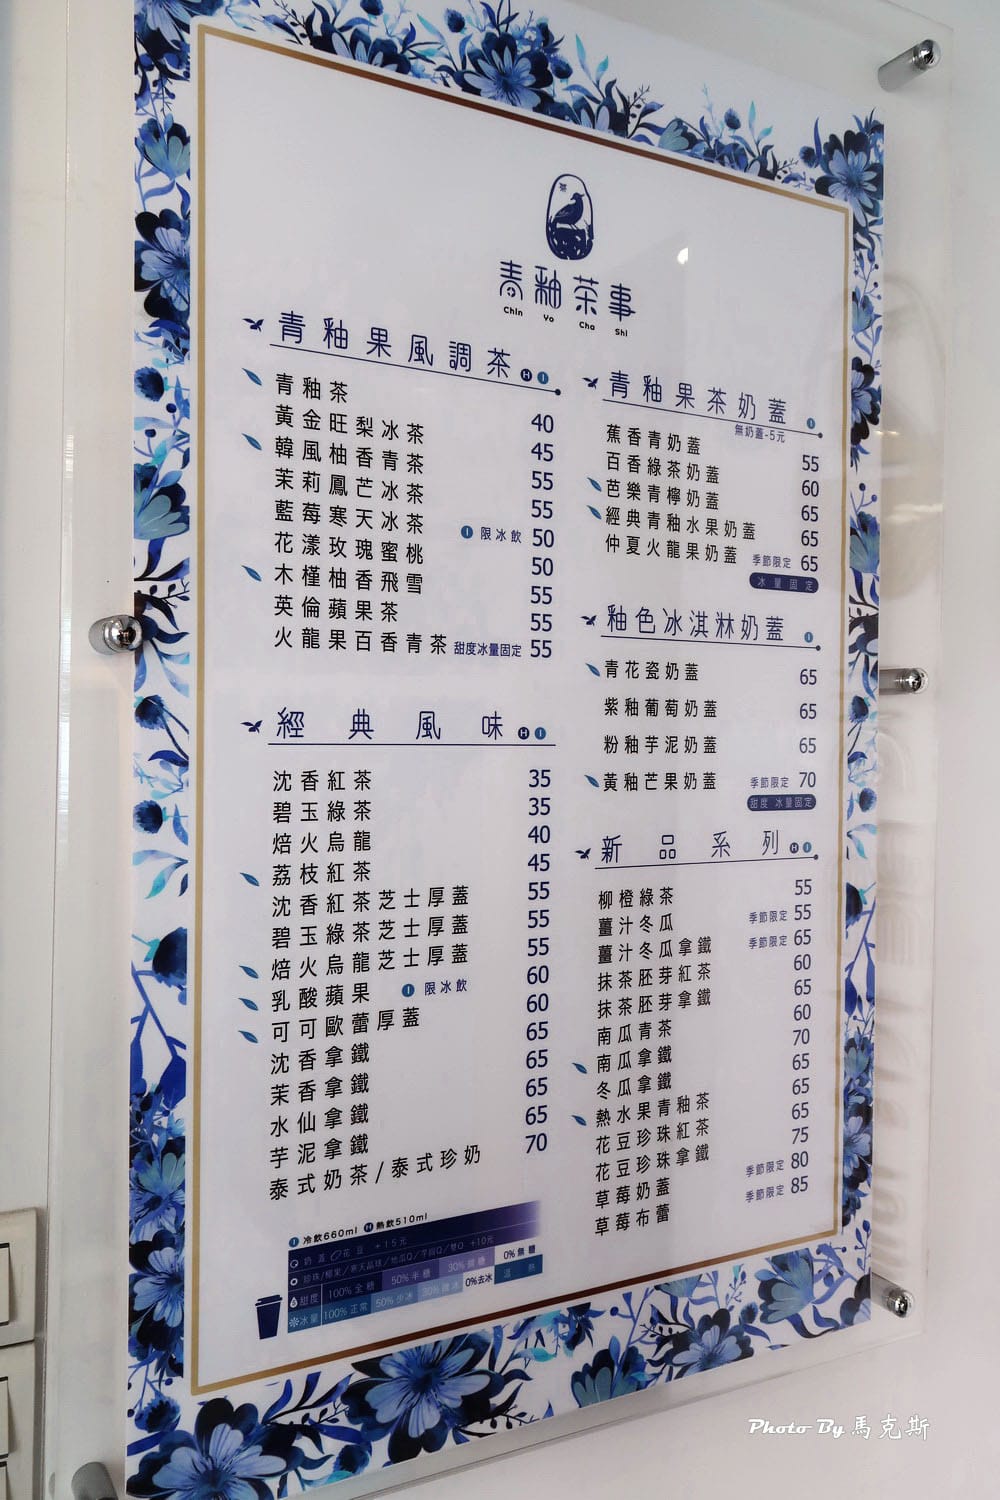 茶
青釉茶事
Chin Yo Cha Shi
青釉果風調茶 H I
青釉茶 40
黃金旺梨冰茶 45
韓風柚香青茶 55
茉莉鳳芒冰茶 55
藍莓寒天冰茶 I 限冰飲 50
花漾玫瑰蜜桃 50
木槿柚香飛雪 55
英倫蘋果茶 55
火龍果百香青茶 甜度冰量固定 55
經典風味 H I
沈香紅茶 35
碧玉綠茶 35
焙火烏龍 40
荔枝紅茶 45
沈香紅茶芝士厚蓋 55
碧玉綠茶芝士厚蓋 55
焙火烏龍芝士厚蓋 55
乳酸蘋果 I 限冰飲 60
可可歐蕾厚蓋 60
沈香拿鐵 65
茉香拿鐵 65
水仙拿鐵 65
芋泥拿鐵 65
泰式奶茶/泰式珍奶 70
I 冷飲660ml H 熱飲510ml
奶蓋 花豆 +15元
珍珠/椰果/寒天晶球/地瓜Q/芋圓Q/雙Q +10元
甜度 100%全糖 50%半糖 30%微糖 0%無糖
冰量 100%正常 50%少冰 30%微冰 0%去冰 溫 熱
青釉果茶奶蓋 I
無奶蓋-5元
蕉香青奶蓋 55
百香綠茶奶蓋 60
芭樂青檸奶蓋 65
經典青釉水果奶蓋 65
仲夏火龍果奶蓋 季節限定 65
冰量固定
釉色冰淇淋奶蓋 I
青花瓷奶蓋 65
紫釉葡萄奶蓋 65
粉釉芋泥奶蓋 65
黃釉芒果奶蓋 季節限定 70
甜度 冰量固定
新品系列 H I
柳橙綠茶 55
薑汁冬瓜 季節限定 55
薑汁冬瓜拿鐵 季節限定 65
抹茶胚芽紅茶 60
抹茶胚芽拿鐵 65
南瓜青茶 60
南瓜拿鐵 70
冬瓜拿鐵 65
熱水果青釉茶 65
花豆珍珠紅茶 65
花豆珍珠拿鐵 75
草莓奶蓋 季節限定 80
草莓布蕾 季節限定 85
Photo By 馬克斯